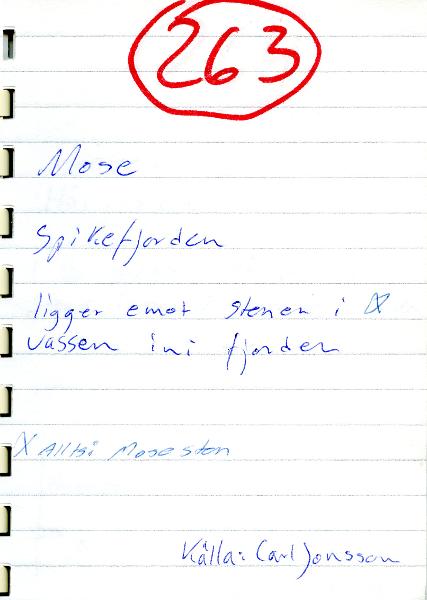 263
Mose
Spikefjorden
ligger emot stenen i X
vassen ini fjorden
X Alltsi Mose sten
Källa: Carl Jonsson